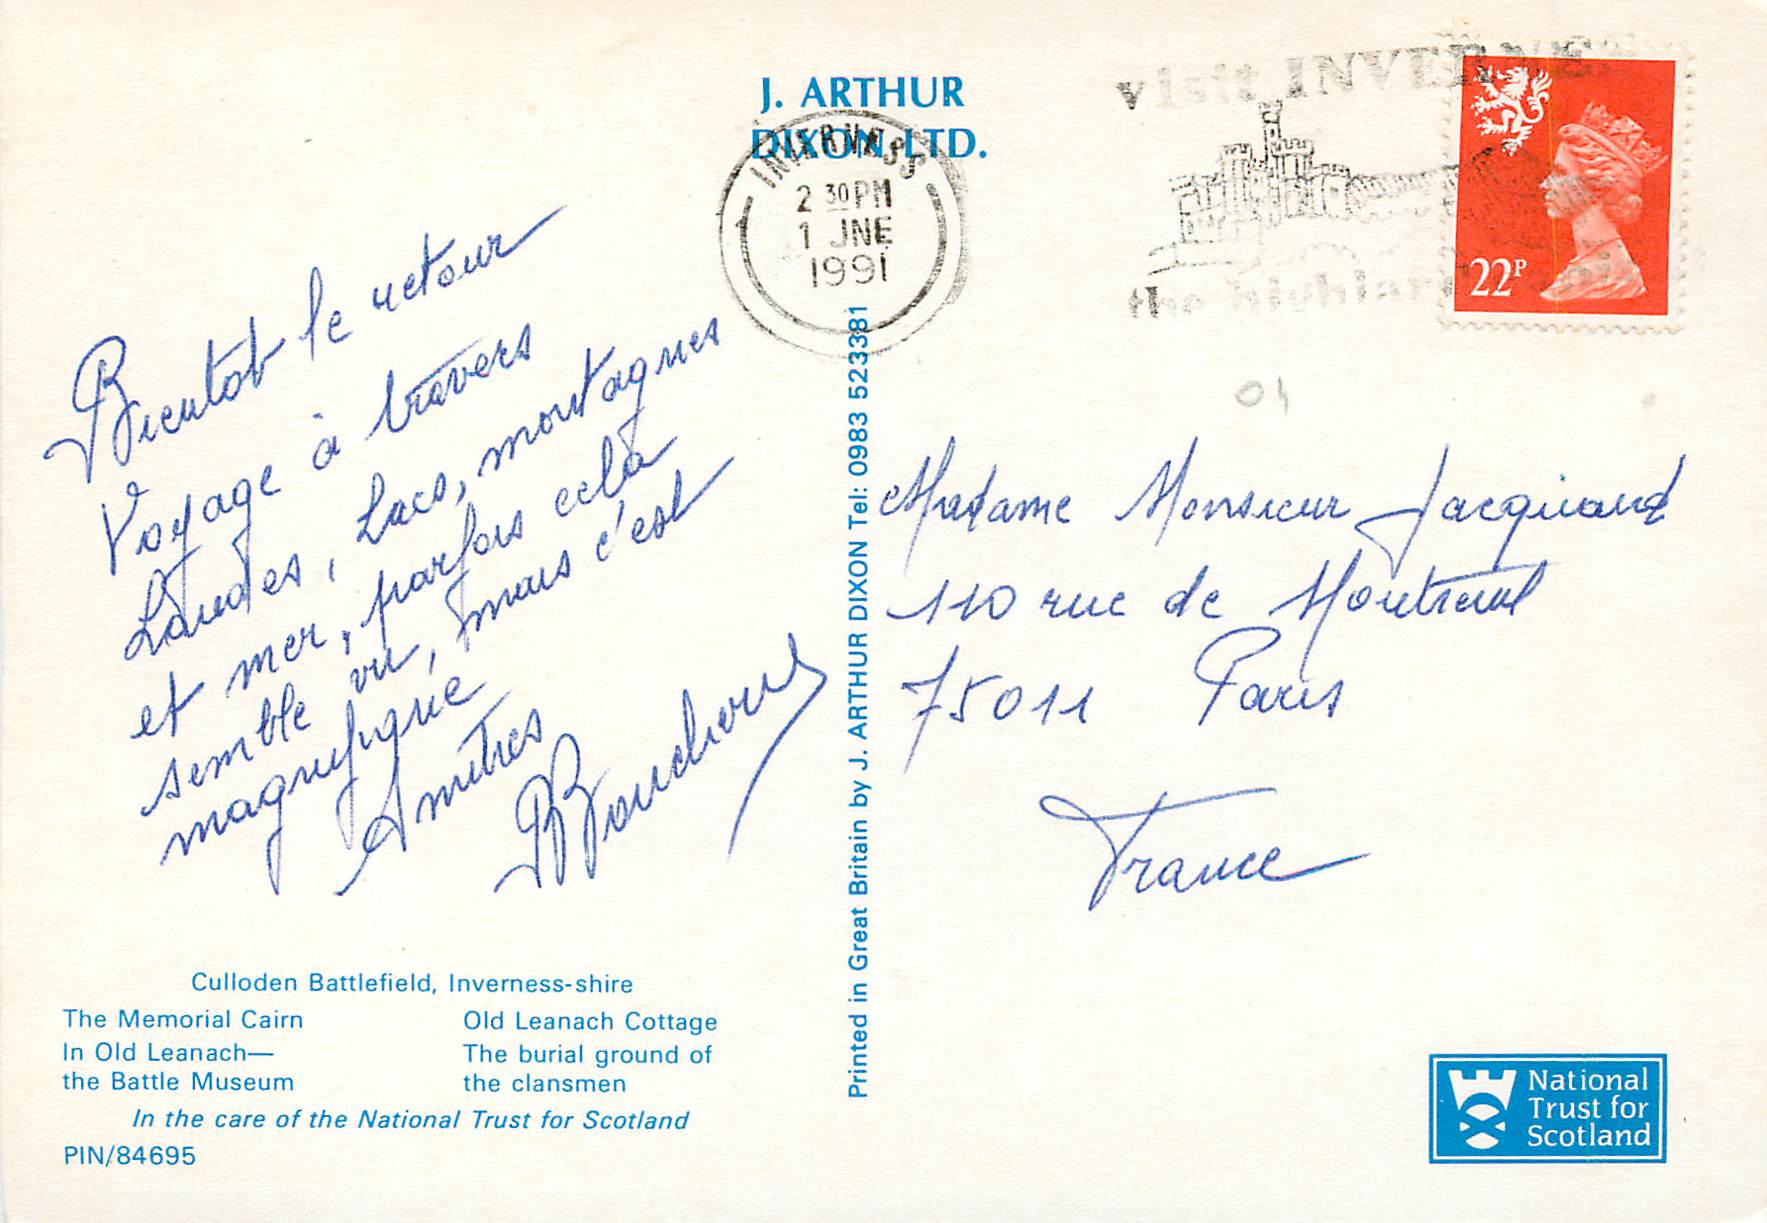 J. ARTHUR
DIXON LTD.
INVERNESS
2 30 PM
1 JNE
1991
visit INVERNESS
the
22P
01
Bientot le retour
Voyage à travers
Landes, Lacs, montagnes
et mer, parfois celà
semble vu, mais c'est
magnifique
Amitiés
Madame Monsieur Jacquand
110 rue de Montreuil
75011 Paris
France
Printed in Great Britain by J. ARTHUR DIXON Tel: 0983 523381
Culloden Battlefield, Inverness-shire
The Memorial Cairn
In Old Leanach—
the Battle Museum
Old Leanach Cottage
The burial ground of
the clansmen
In the care of the National Trust for Scotland
PIN/84695
National
Trust for
Scotland